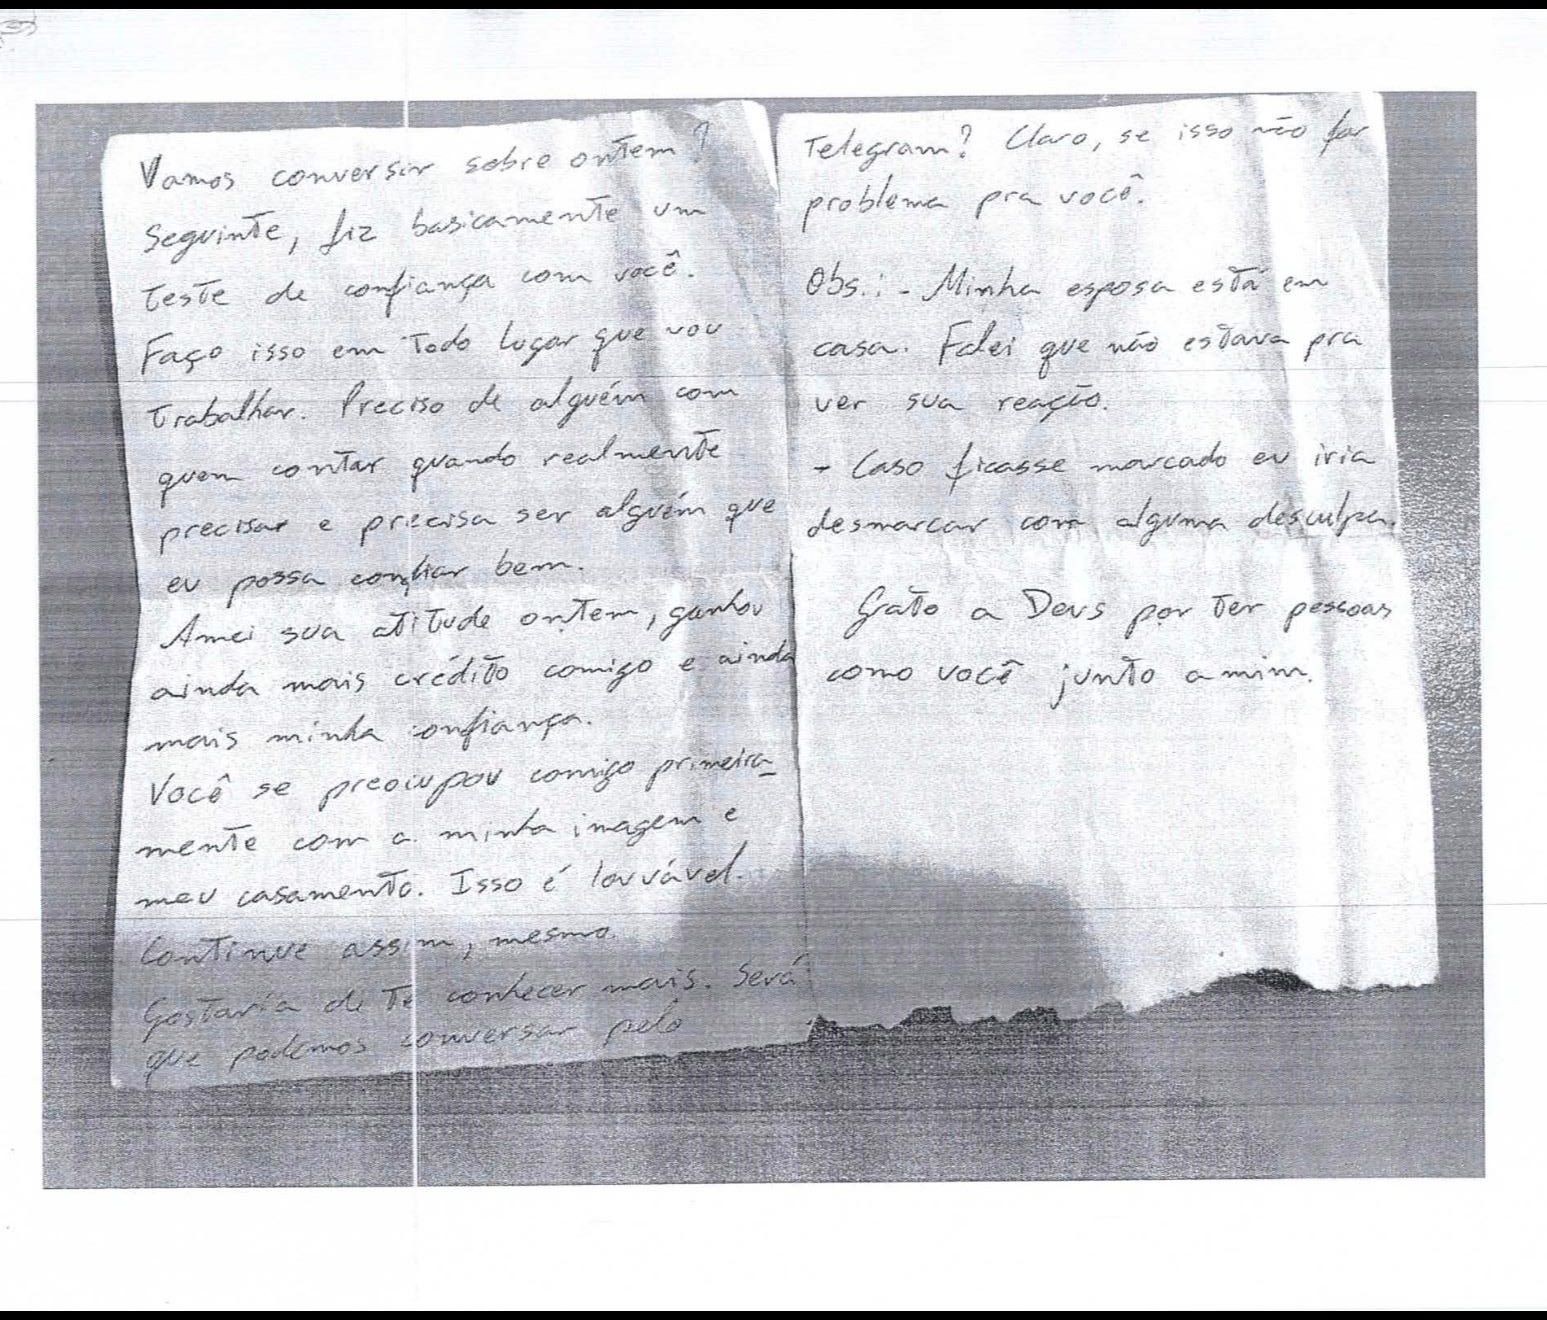 Vamos conversar sobre ontem?
Seguinte, fiz basicamente um
teste de confiança com você.
Faço isso em todo lugar que vou
trabalhar. Preciso de alguém com
quem contar quando realmente
precisar e precisa ser alguém que
eu possa confiar bem.
Amei sua atitude ontem, ganhou
ainda mais crédito comigo e ainda
mais minha confiança.
Você se preocupou comigo primeira-
mente com a minha imagem e
meu casamento. Isso é louvável.
Continue assim, mesmo.
Gostaria de te conhecer mais. Será
que podemos conversar pelo
Telegram? Claro, se isso não for
problema pra você.
Obs.: - Minha esposa está em
casa. Falei que não estava pra
ver sua reação.
- Caso ficasse marcado eu iria
desmarcar com alguma desculpa.
Grato a Deus por ter pessoas
como você junto a mim.